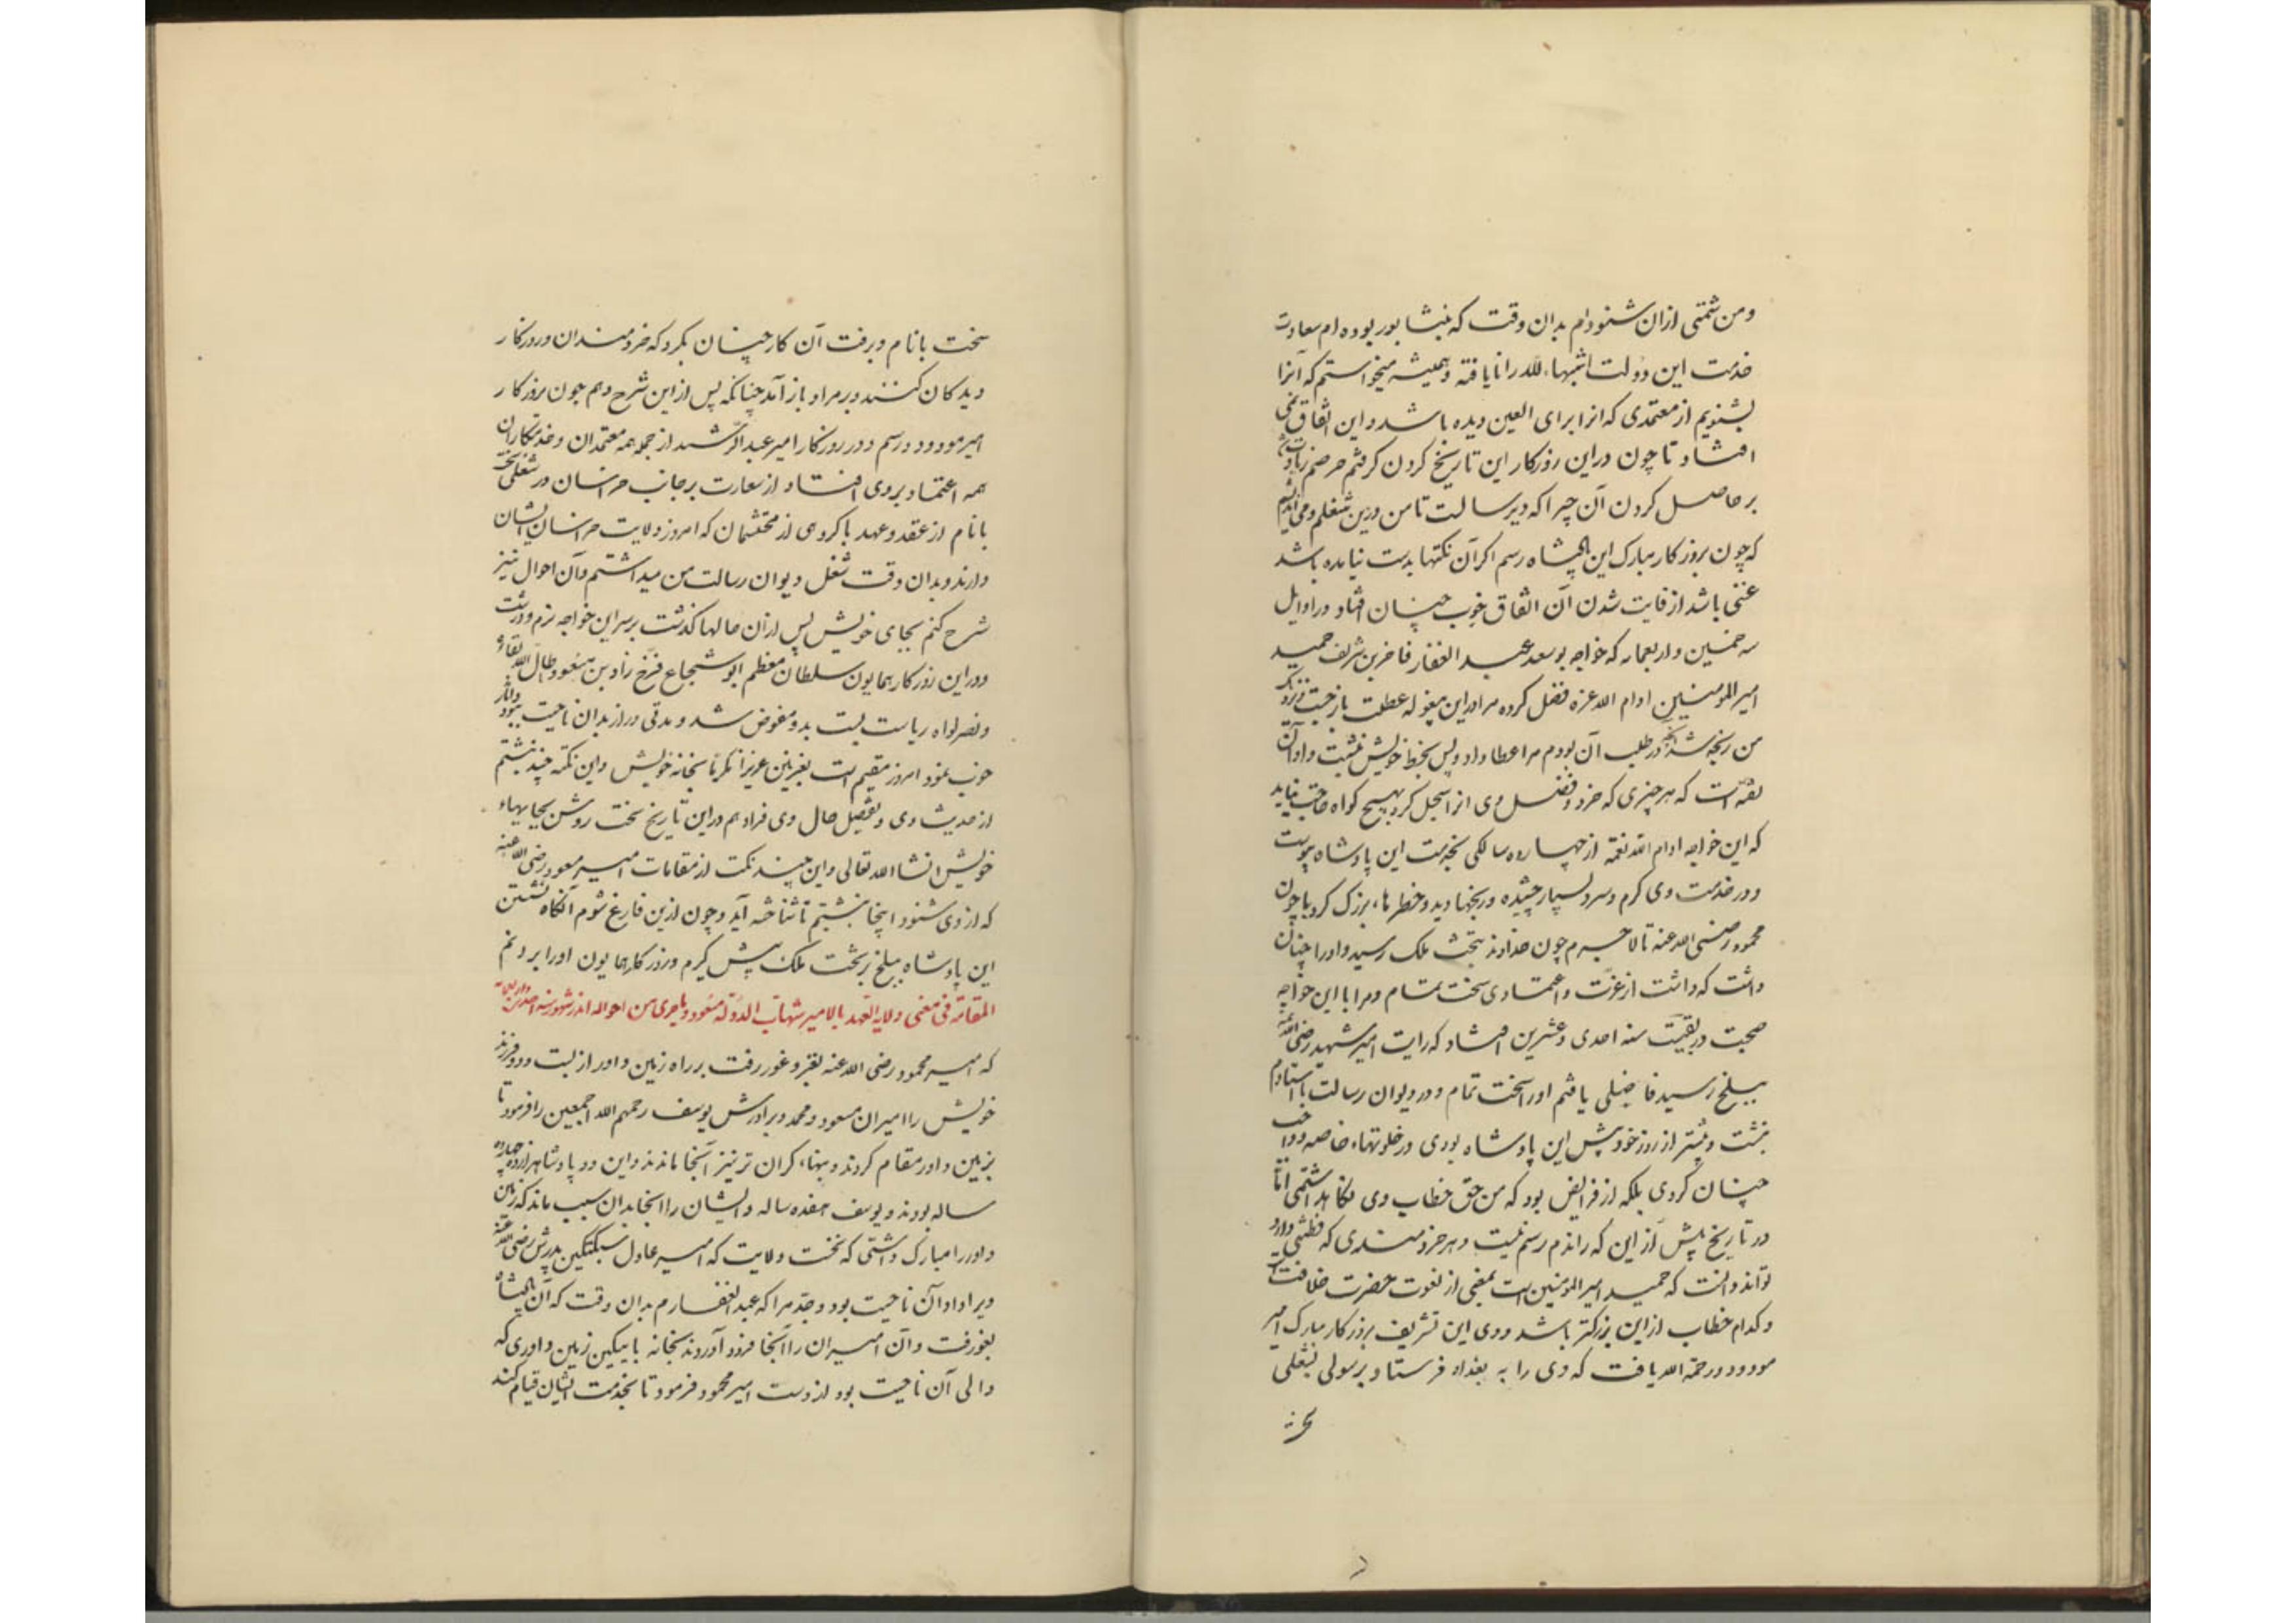 ومن شمتی ازان شنوده‌ام بدان وقت که بنشابور بوده ام سعادت
خدمت این دولت اثبتها الله را نایافته و همیشه میخواستم که آنرا
بشنویم از معتمدی که انرا برای العین دیده باشد و این اتفاق نمی
افتاد تا چون دراین روزکار این تاریخ کردن کرفتم حرصم زیادت شد
بر حاصل کردن آن چرا که دیر سالست تا من درین شغلم و می اندیشم
که چون بروزکار مبارک این پادشاه رسم اکر آن نکتها بدست نیامده باشد
غبنی باشد از فایت شدن آن اتفاق خوب چنان افتاد در اوایل
سنه خمسین و اربعمایه که خواجه بوسعد عبد الغفار فاخر بن شریف حمید
امیر المومنین ادام الله عزه فضل کرده مرا دراین بیغوله عطلت باز جست و نزدیک
من رنجه شد و آنچه در طلب آن بودم مرا عطا داد و پس بخط خویش نبشت و او آن
ثقه است که هر چیزی که خرد و فضل وی انرا سجل کرد بهیچ کواه حاجت نیاید
که این خواجه ادام الله نعمه از چهارده سالکی بخدمت این پادشاه پیوست
و در خدمت وی کرم و سرد بسیار چشیده و رنجها دید و خطرها، بزرک کرد با چون
محمود رضی الله عنه تا لاجرم چون خداوند بتخت ملک رسید و او را چنان
داشت که داشت از عزت و اعتمادی سخت تمام و مرا با این خواجه
صحبت در بقیت سنه احدی و عشرین افتاد که رایت امیر شهید رضی الله عنه
ببلخ رسید فاضلی یافتم او را سخت تمام و در دیوان رسالت با استادم
بنشت و بیشتر از روز خود پیش این پادشاه بودی در خلوتهاء خاصه و واجب
چنان کردی بلکه از فرایض بود که من حق خطاب وی نکاهداشتمی اما
در تاریخ پیش از این که راندم رسم نیست و هر خردمندی که فطنتی دارد
تواند دانست که حمید امیر المومنین است بمعنی از نعوت حضرت خلافت است
و کدام خطاب از این بزرکتر باشد و وی این تشریف بروزکار مبارک امیر
مودود رحمة الله یافت که وی را به بغداد فرستاد برسولی بشغلی
سخت
سخت بانام و برفت آن کار چنان بکرد که خردمندان و روزکار
دیدکان کنند و بر مراد باز آمد چنانکه پس از این شرح دهم چون بروزکار
امیر مودود رسم و در روزکار امیر عبد الرشید از جمله همه معتمدان و خدمتکاران
همه اعتماد بر وی افتاد از سفارت بر جانب خراسان در شغلی سخت
بانام از عقد و عهد با کروهی از محتشمان که امروز ولایت خراسان ایشان
دارند و بدان وقت شغل دیوان رسالت من میداشتم و آن احوال نیز
شرح کنم بجای خویش پس ازان حالها کذشت بر سر این خواجه نرم و درشت
و در این روزکار همایون سلطان معظم ابو شجاع فرخ زاد بن مسعود اطال الله بقاءه
و نصر لواه ریاست بست بدو مفوض شد و مدتی دراز بدان ناحیت ببود و آثار
خوب نمود امروز مقیم است بغزنین عزیزا مکرما بخانه خویش و این نکته چند نبشتم
از حدیث وی و تفصیل حال وی فرا دهم در این تاریخ سخت روشن بجایهاء
خویش انشا الله تعالی و این چند نکت از مقامات امیر مسعود رضی الله عنه
که از وی شنود اینجا نبشتم تا شناخته آید و چون ازین فارغ شوم آنکاه نشستن
این پادشاه ببلخ بر تخت ملک پیش کیرم و روزکار همایون او را برانم
المقامة فی معنی ولایة العهد بالامیر شهاب الدولة مسعود و ماجری من احواله اندر شهور سنه احدی و اربعمایة
که امیر محمود رضی الله عنه بغزو غور رفت بر راه زمین داور از بست و دو فرزند
خویش را امیران مسعود و محمد و برادرش یوسف رحمهم الله اجمعین را فرمود تا
بزمین داور مقام کردند و بنهاء کران تر نیز آنجا ماندند و این دو پادشاهزاده چهارده
ساله بودند و یوسف هفده ساله و ایشان را اینجا بدان سبب ماند که زمین
داور را مبارک داشتی که نخست ولایت که امیر عادل سبکتکین پدرش رضی الله عنه
ویرا داد آن ناحیت بود و جد مرا که عبد الغفارم بدان وقت که آن پادشاه
بغور رفت و آن امیران را آنجا فرود آوردند بخانه بایتکین زمین داوری که
والی آن ناحیت بود از دست امیر محمود فرمود تا بخدمت ایشان قیام کند